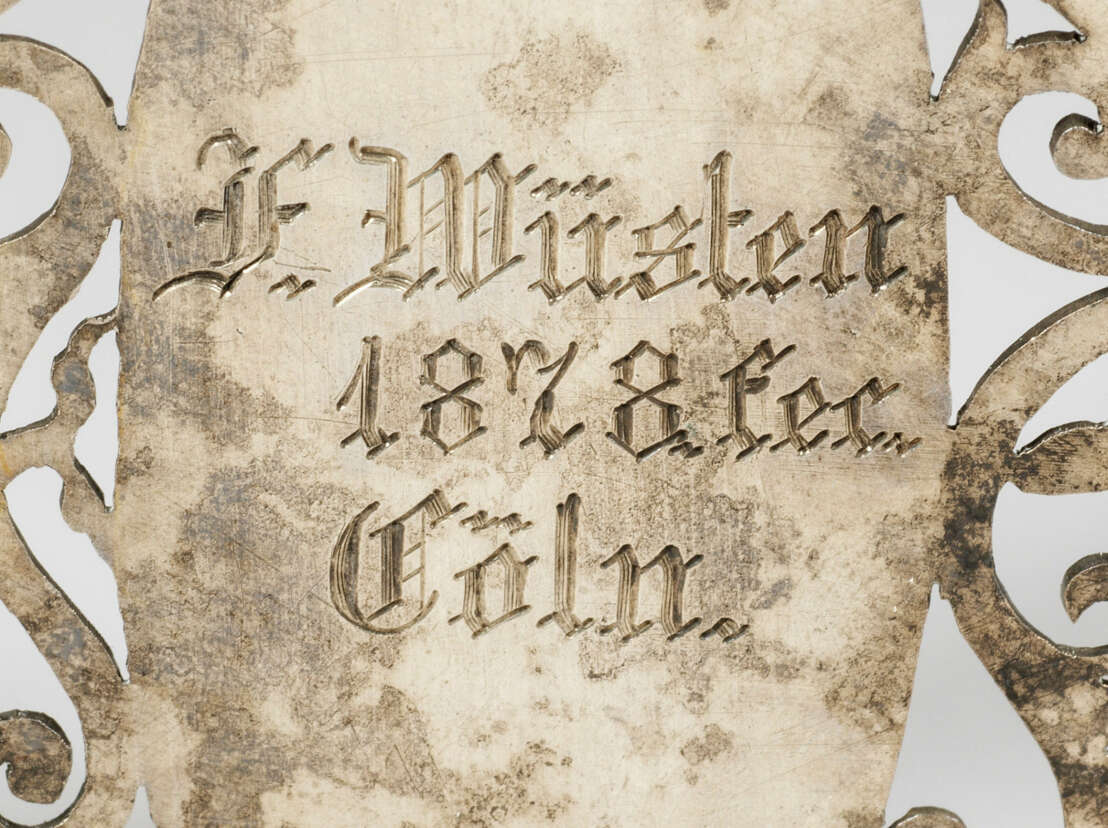 F. Wüsten
1878. fec.
Cöln.